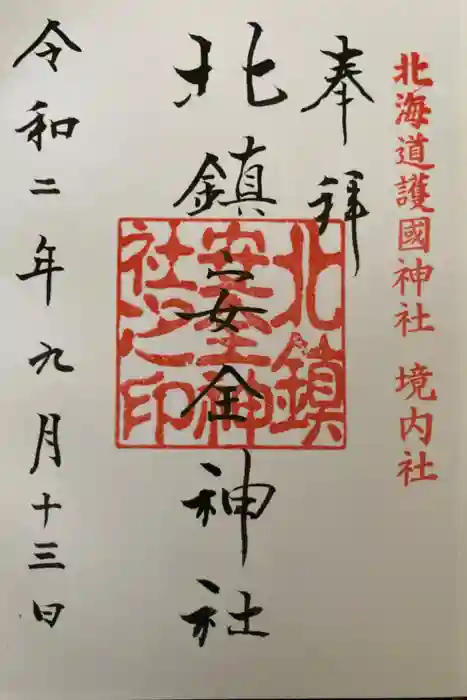 北海道護國神社 境内社
奉拝
北鎮安全神社
北鎮
安全神
社之印
令和二年九月十三日